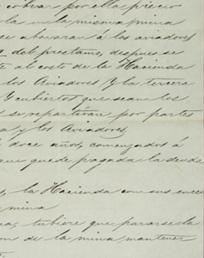 cobrar por ella precio
la misma mina
se abonarán á los aviadores
del prestamo, despues se
al costo de la Hacienda
los Aviadores y la tercera
cubiertos que sean los
se repartirán por partes
a y los Aviadores
doce años, comenzados á
que quede pagada la deuda
la Hacienda con sus enceres
mina
tubiere que pararse la
de la mina, mantener